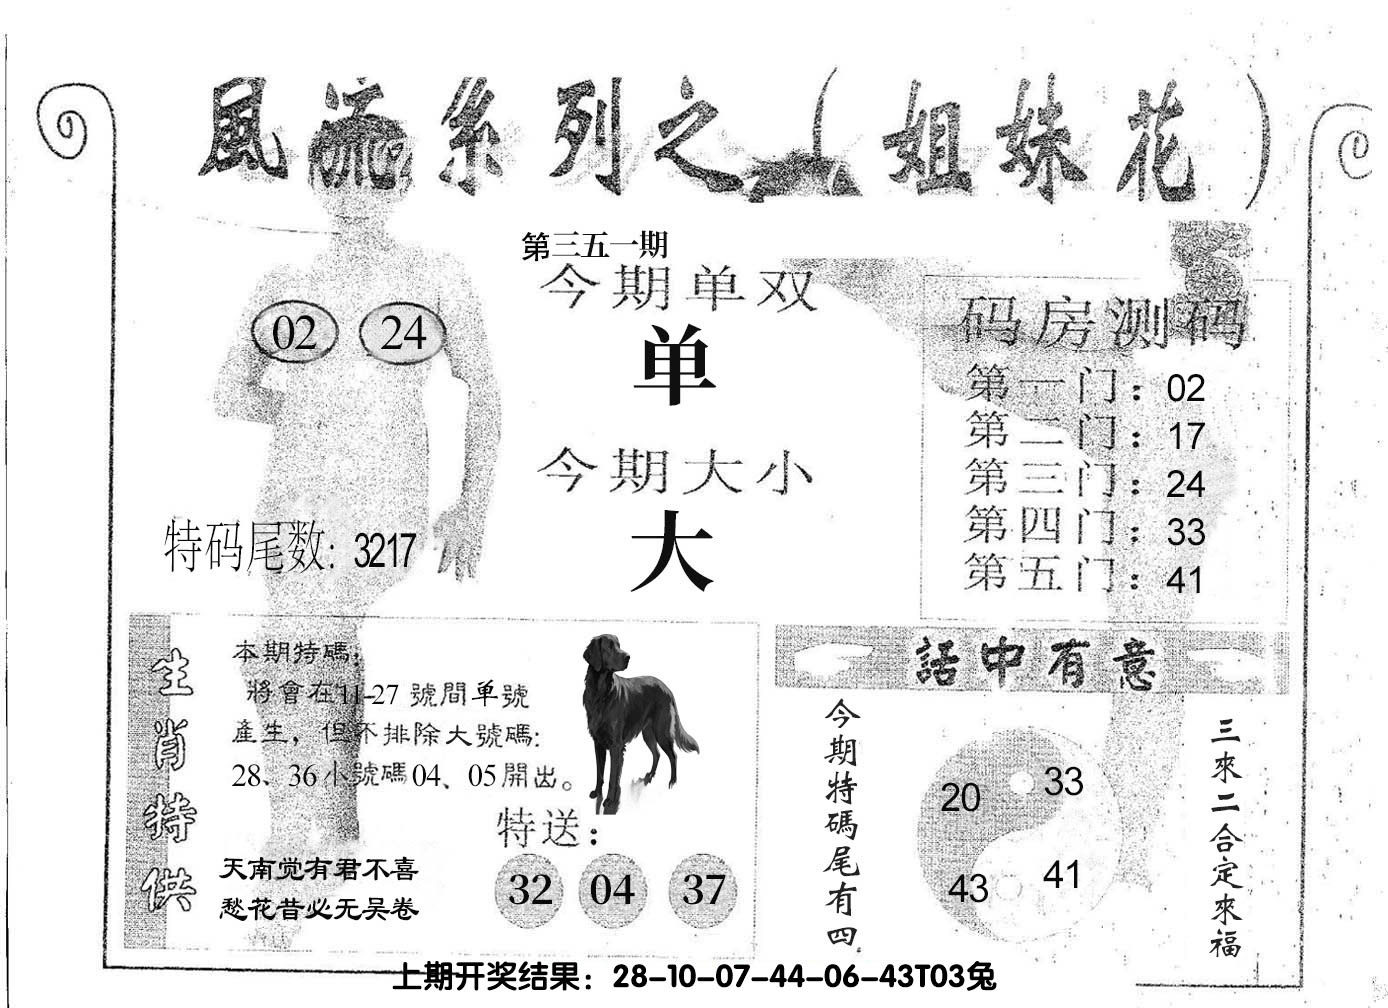 風流系列之（姐妹花）
第三五一期
今期单双
单
今期大小
大
02 24
特码尾数：3217
码房测码
第一门：02
第二门：17
第三门：24
第四门：33
第五门：41
生肖特供
本期特碼，
將會在11-27號間单號
產生，但不排除大號碼：
28、36小號碼04、05開出。
特送：
32 04 37
天南觉有君不喜
愁花昔必无吴卷
話中有意
今期特碼尾有四
20 33
43 41
三來二合定來福
上期开奖结果：28-10-07-44-06-43T03兔